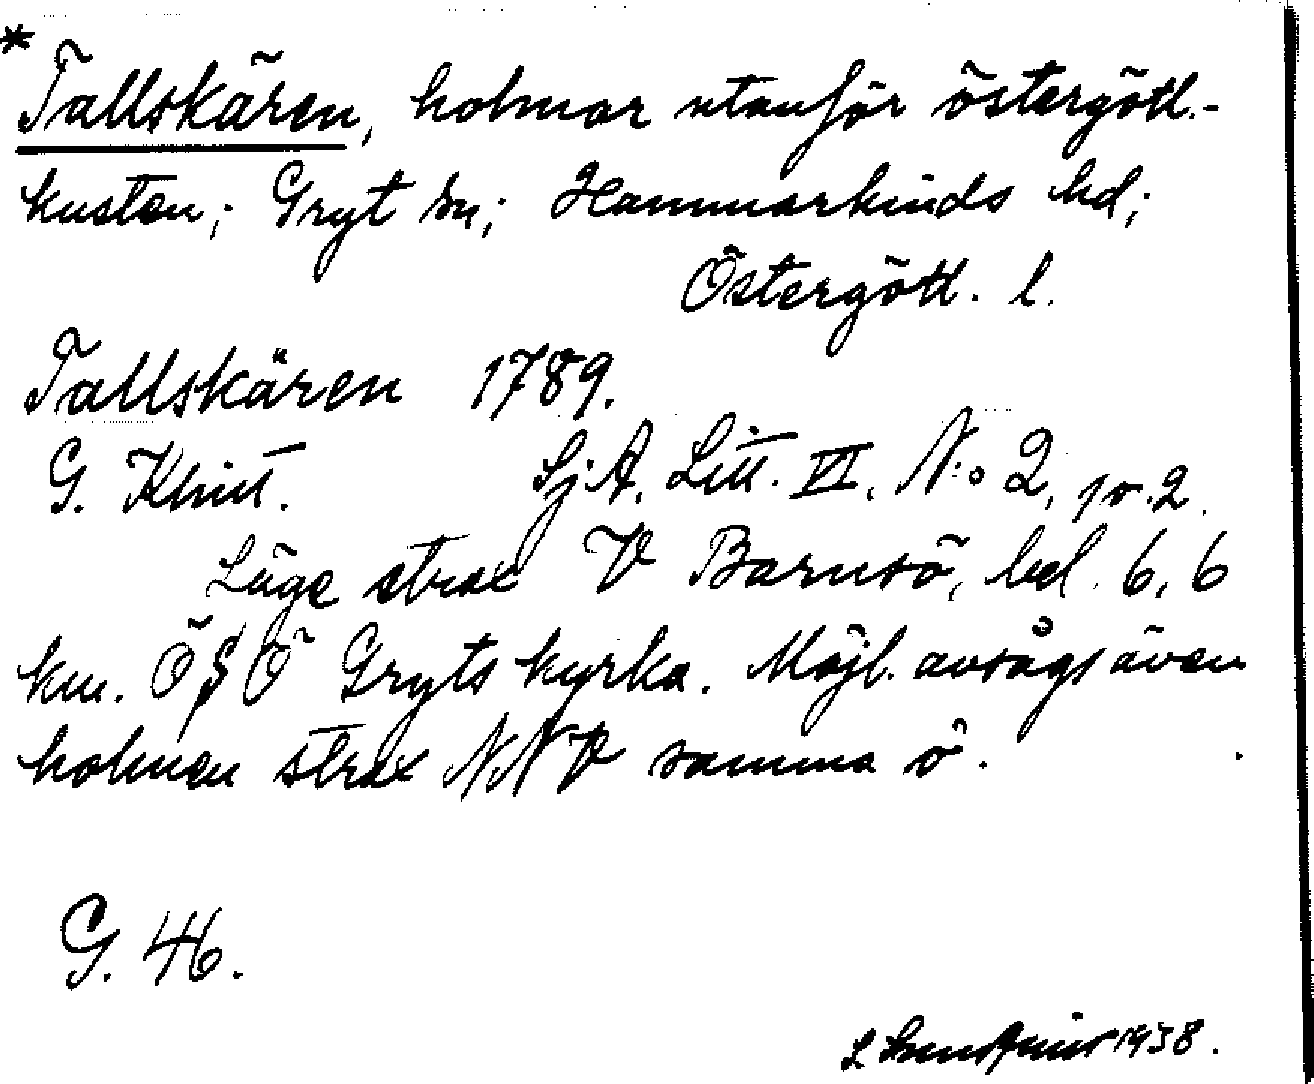 *Tallskären, holmar utanför östergötl.-
kusten; Gryt sn; Hammarkinds hd;
Östergötl. l.
Tallskären 1789.
G. Klint. Sj.A. Litt. VI. N:o 2, pr. 2.
Läge strax V Barnsö, bel. 6,6
km. ÖSÖ Gryts kyrka. Möjl. avsågs även
holmen strax NNV samma ö.
G. 46.
L 1938.